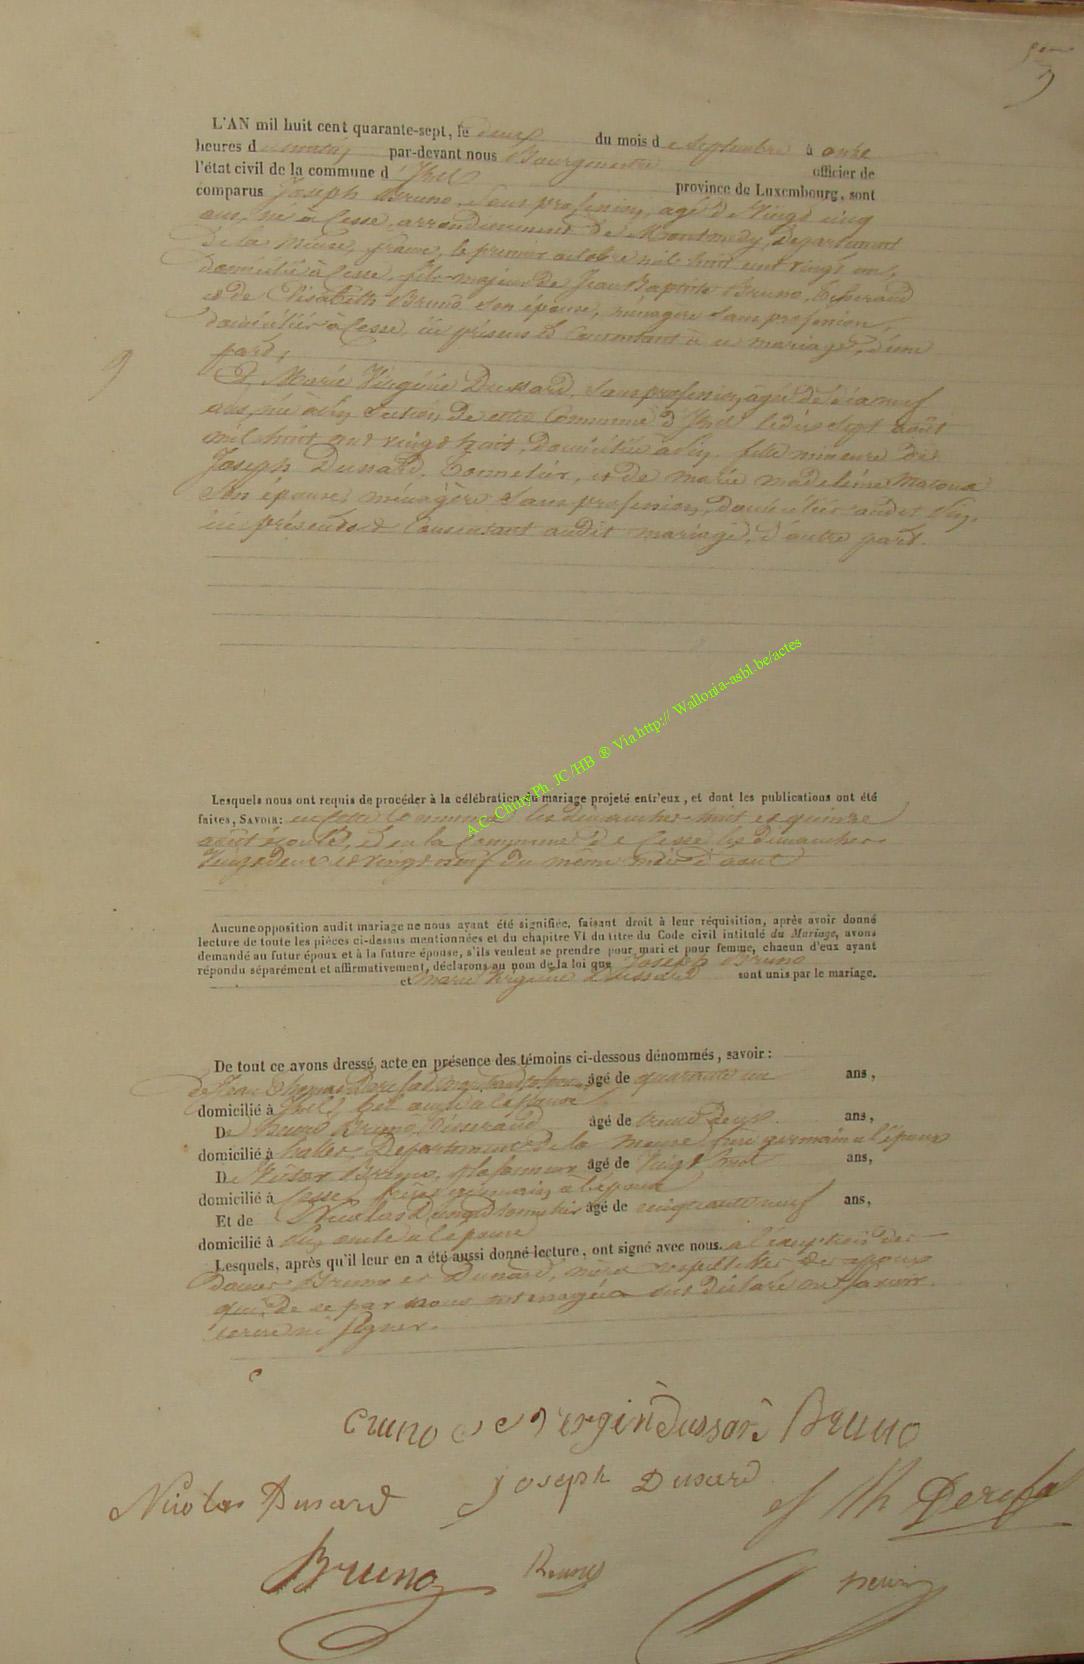 9
L'AN mil huit cent quarante-sept, le deux du mois de septembre à onze
heures du matin par-devant nous Bourgmestre officier de
l'état civil de la commune d'Izel province de Luxembourg, sont
comparus Joseph Bruno, sans profession, agé de vingt cinq
ans, né à Cesse, arrondissement de Montmedy, departement
de la meuse, france, le premier octobre mil huit cent vingt un,
domicilié à Cesse, fils majeur de Jean Baptiste Bruno, tisserand
et de Elisabeth Bruno son épouse, ménagère sans profession,
domiciliés à Cesse, ici présens et consentant à ce mariage, d'une
part;
9
Et Marie Virginie Dussard, sans profession, agée de dix neuf
ans, née à section de cette Commune d'Izel le dix sept août
mil huit cent vingt huit, domiciliée à fille mineure de
Joseph Dussard, et de marie madeleine
son épouse, ménagère sans profession, domiciliés audit
ici présents & consentant audit mariage, d'autre part.
A.C. Chiny Ph. JC/HB ® Via http:// Wallonia-asbl.be/actes
Lesquels nous ont requis de procéder à la célébration du mariage projeté entr'eux, et dont les publications ont été
faites, SAVOIR: en cette Commune les dimanches huit et quinze
août écoulé, et en la Commune de Cesse les dimanches
vingt deux et vingt neuf du même mois d'août
Aucune opposition audit mariage ne nous ayant été signifiée, faisant droit à leur réquisition, après avoir donné
lecture de toute les pièces ci-dessus mentionnées et du chapitre VI du titre du Code civil intitulé du Mariage, avons
demandé au futur époux et à la future épouse, s'ils veulent se prendre pour mari et pour femme, chacun d'eux ayant
répondu séparément et affirmativement, déclarons au nom de la loi que Joseph Bruno
et marie Virginie Dussard sont unis par le mariage.
De tout ce avons dressé acte en présence des témoins ci-dessous dénommés, savoir:
de Jean thomas âgé de quarante un ans,
domicilié à Izel, bel oncle à l'épouse
De Bruno, tisserand âgé de trente deux ans,
domicilié à halles, Departement de la meuse, frère germain à l'époux
De Victor Bruno, plafonneur âgé de vingt huit ans,
domicilié à Cesse, frère germain à l'époux
Et de Nicolas Dussard âgé de cinquante neuf ans,
domicilié à oncle à l'épouse
Lesquels, après qu'il leur en a été aussi donné lecture, ont signé avec nous. à l'exception des
dames Bruno et Dussard, mères respectives des époux
qui de ce par nous interrogées ont déclaré ne savoir
écrire ni signer.
Bruno
Nicolas Dusard Joseph Dusard
Bruno Bruno